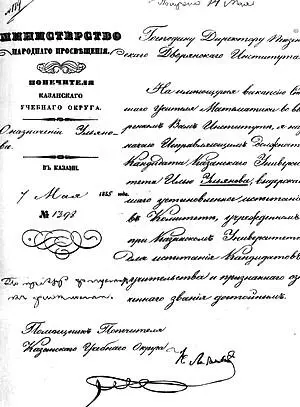 МИНИСТЕРСТВО
НАРОДНАГО ПРОСВѢЩЕНІЯ.
ПОПЕЧИТЕЛЯ
КАЗАНСКАГО
УЧЕБНАГО ОКРУГА.
О назначеніи Ульяно-
ва.
ВЪ КАЗАНИ.
7 Мая 1855 года.
№ 1398
Господину Директору Пензен-
скаго Дворянскаго Института.
На имѣющуюся вакансію
учителя Математики во
ренномъ Вамъ Институтѣ, я
Кандидата Казанскаго Универси-
тета Илью Ульянова, выдержав-
шаго установленное испытаніе
въ Комитетѣ, учрежденномъ
при Казанскомъ Университетѣ
для испытанія Кандидатовъ
учительства и признаннаго
званія достойнымъ.
Помощникъ Попечителя
Казанскаго Учебнаго Округа